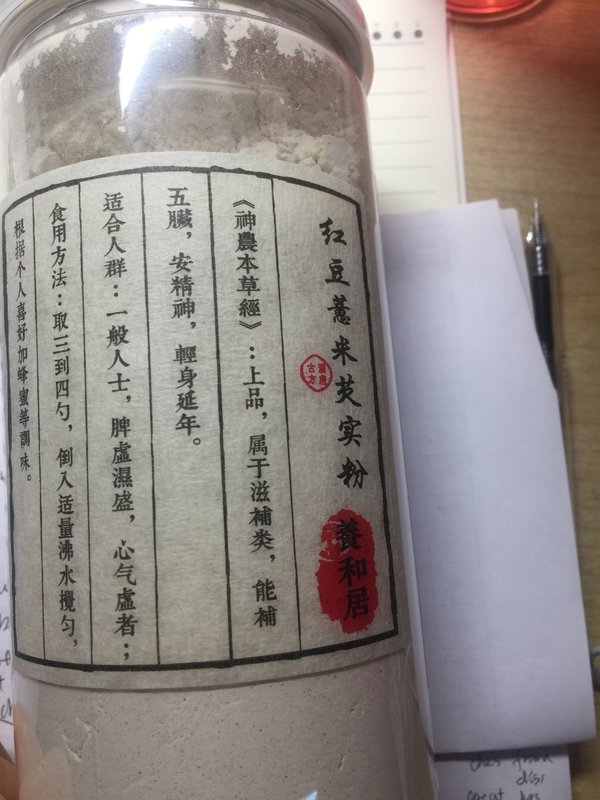 红豆薏米芡实粉
古方
養和居
《神農本草經》：上品，属于滋補类，能補
五臟，安精神，輕身延年。
适合人群：一般人士，脾虛濕盛，心气虛者；
食用方法：取三到四勺，倒入适量沸水攪匀，
根据个人喜好加蜂蜜等調味。